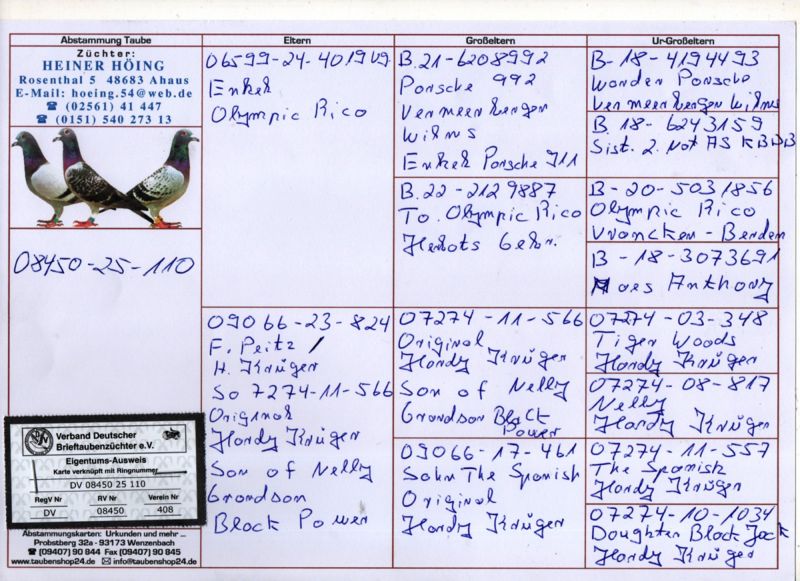 Abstammung Taube
Züchter:
HEINER HÖING
Rosenthal 5 48683 Ahaus
E-Mail: hoeing.54@web.de
☎ (02561) 41 447
☎ (0151) 540 273 13
08450-25-110
Verband Deutscher
Brieftaubenzüchter e.V.
Eigentums-Ausweis
Karte verknüpft mit Ringnummer
DV 08450 25 110
RegV Nr RV Nr Verein Nr
DV 08450 408
Abstammungskarten: Urkunden und mehr ...
Probstberg 32a - 93173 Wenzenbach
☎ (09407) 90 844 Fax (09407) 90 845
www.taubenshop24.de ✉ info@taubenshop24.de
Eltern
06599-24-4019 Vg.
Enkel
Olympic Rico
09066-23-824
F. Peitz /
H. Krüger
So 7274-11-566
Original
Hardy Krüger
Son of Nelly
Grandson
Black Power
Großeltern
B.21-6208992
Porsche 992
Vermeerbergen
Wilms
Enkel Porsche 911
B.22-2129887
To. Olympic Rico
Herbots Gebr.
07274-11-566
Original
Hardy Krüger
Son of Nelly
Grandson Black
Power
09066-17-461
Sohn The Spanish
Original
Hardy Krüger
Ur-Großeltern
B-18-4194493
Wonder Porsche
Vermeerbergen Wilms
B.18-6243159
Sist. 2. Nat AS KBDB
B-20-5031856
Olympic Rico
Vrancken-Benden
B-18-3073691
Maes Anthony
07274-03-348
Tiger Woods
Hardy Krüger
07274-08-817
Nelly
Hardy Krüger
07274-11-557
The Spanish
Hardy Krüger
07274-10-1034
Doughter Black Jack
Hardy Krüger